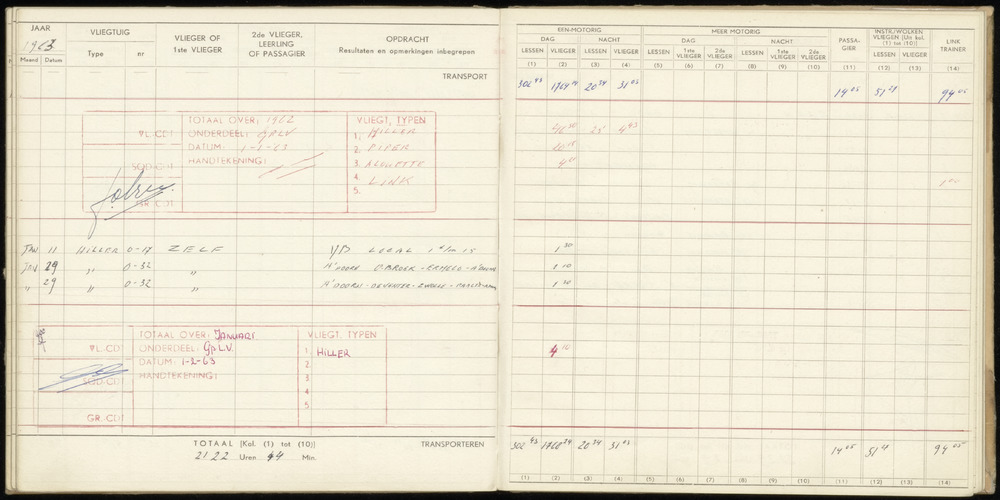 JAAR
1963
Maand Datum
VLIEGTUIG
Type nr
VLIEGER OF
1ste VLIEGER
2de VLIEGER,
LEERLING
OF PASSAGIER
OPDRACHT
Resultaten en opmerkingen inbegrepen
TRANSPORT
EEN-MOTORIG
DAG NACHT
LESSEN VLIEGER LESSEN VLIEGER
(1) (2) (3) (4)
MEER MOTORIG
DAG NACHT
LESSEN 1ste VLIEGER 2de VLIEGER LESSEN 1ste VLIEGER 2de VLIEGER
(5) (6) (7) (8) (9) (10)
PASSA-
GIER
(11)
INSTR./WOLKEN
VLIEGEN (Uit kol.
(1) tot (10))
LESSEN VLIEGER
(12) (13)
LINK
TRAINER
(14)
302 43 1764 14 20 34 31 03 14 05 51 21 94 05
TOTAAL OVER: 1962
VL-CDT ONDERDEEL: GPLV
DATUM: 1-1-63
SQD-CDT HANDTEKENING:
GR-CDT
VLIEGT, TYPEN
1. HILLER
2. PIPER
3. ALOUETTE
4. LINK
5.
JAN 11 HILLER O-17 ZELF LOCAL 1 30
JAN 29 " O-32 " A'DOORN - ERMELO
" 29 " O-32 " A'DOORN - DEVENTER - ZWOLLE
TOTAAL OVER: JANUARI
VL-CDT ONDERDEEL: GpLV.
DATUM: 1-2-63
SQD-CDT HANDTEKENING:
GR-CDT
VLIEGT, TYPEN
1. HILLER
2.
3.
4.
5.
4 10
TOTAAL (Kol. (1) tot (10)) TRANSPORTEREN
2122 Uren 44 Min.
302 43 1768 24 20 34 31 03 14 05 51 21 94 05
(1) (2) (3) (4) (5) (6) (7) (8) (9) (10) (11) (12) (13) (14)